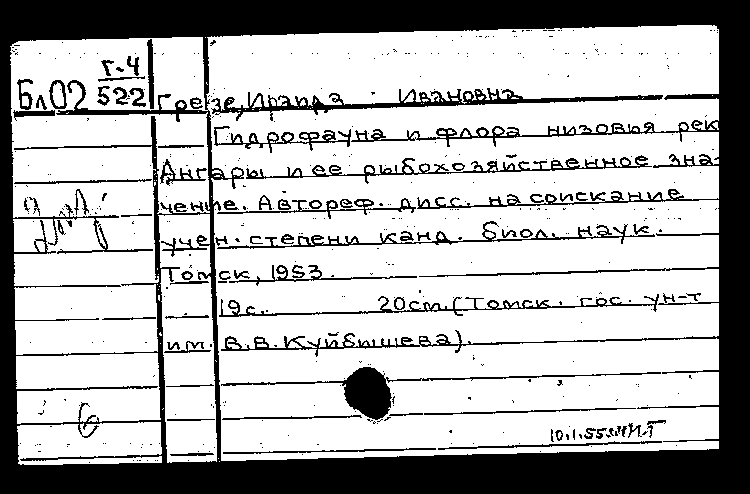 г-4
Бл02 522
Грезе, Ираида Ивановна
Гидрофауна и флора низовья рек
Ангары и ее рыбохозяйственное зна-
чение. Автореф. дисс. на соискание
учен. степени канд. биол. наук.
Томск, 1953.
19с. 20см. (Томск. гос. ун-т
им. В.В. Куйбышева).
10.1.55